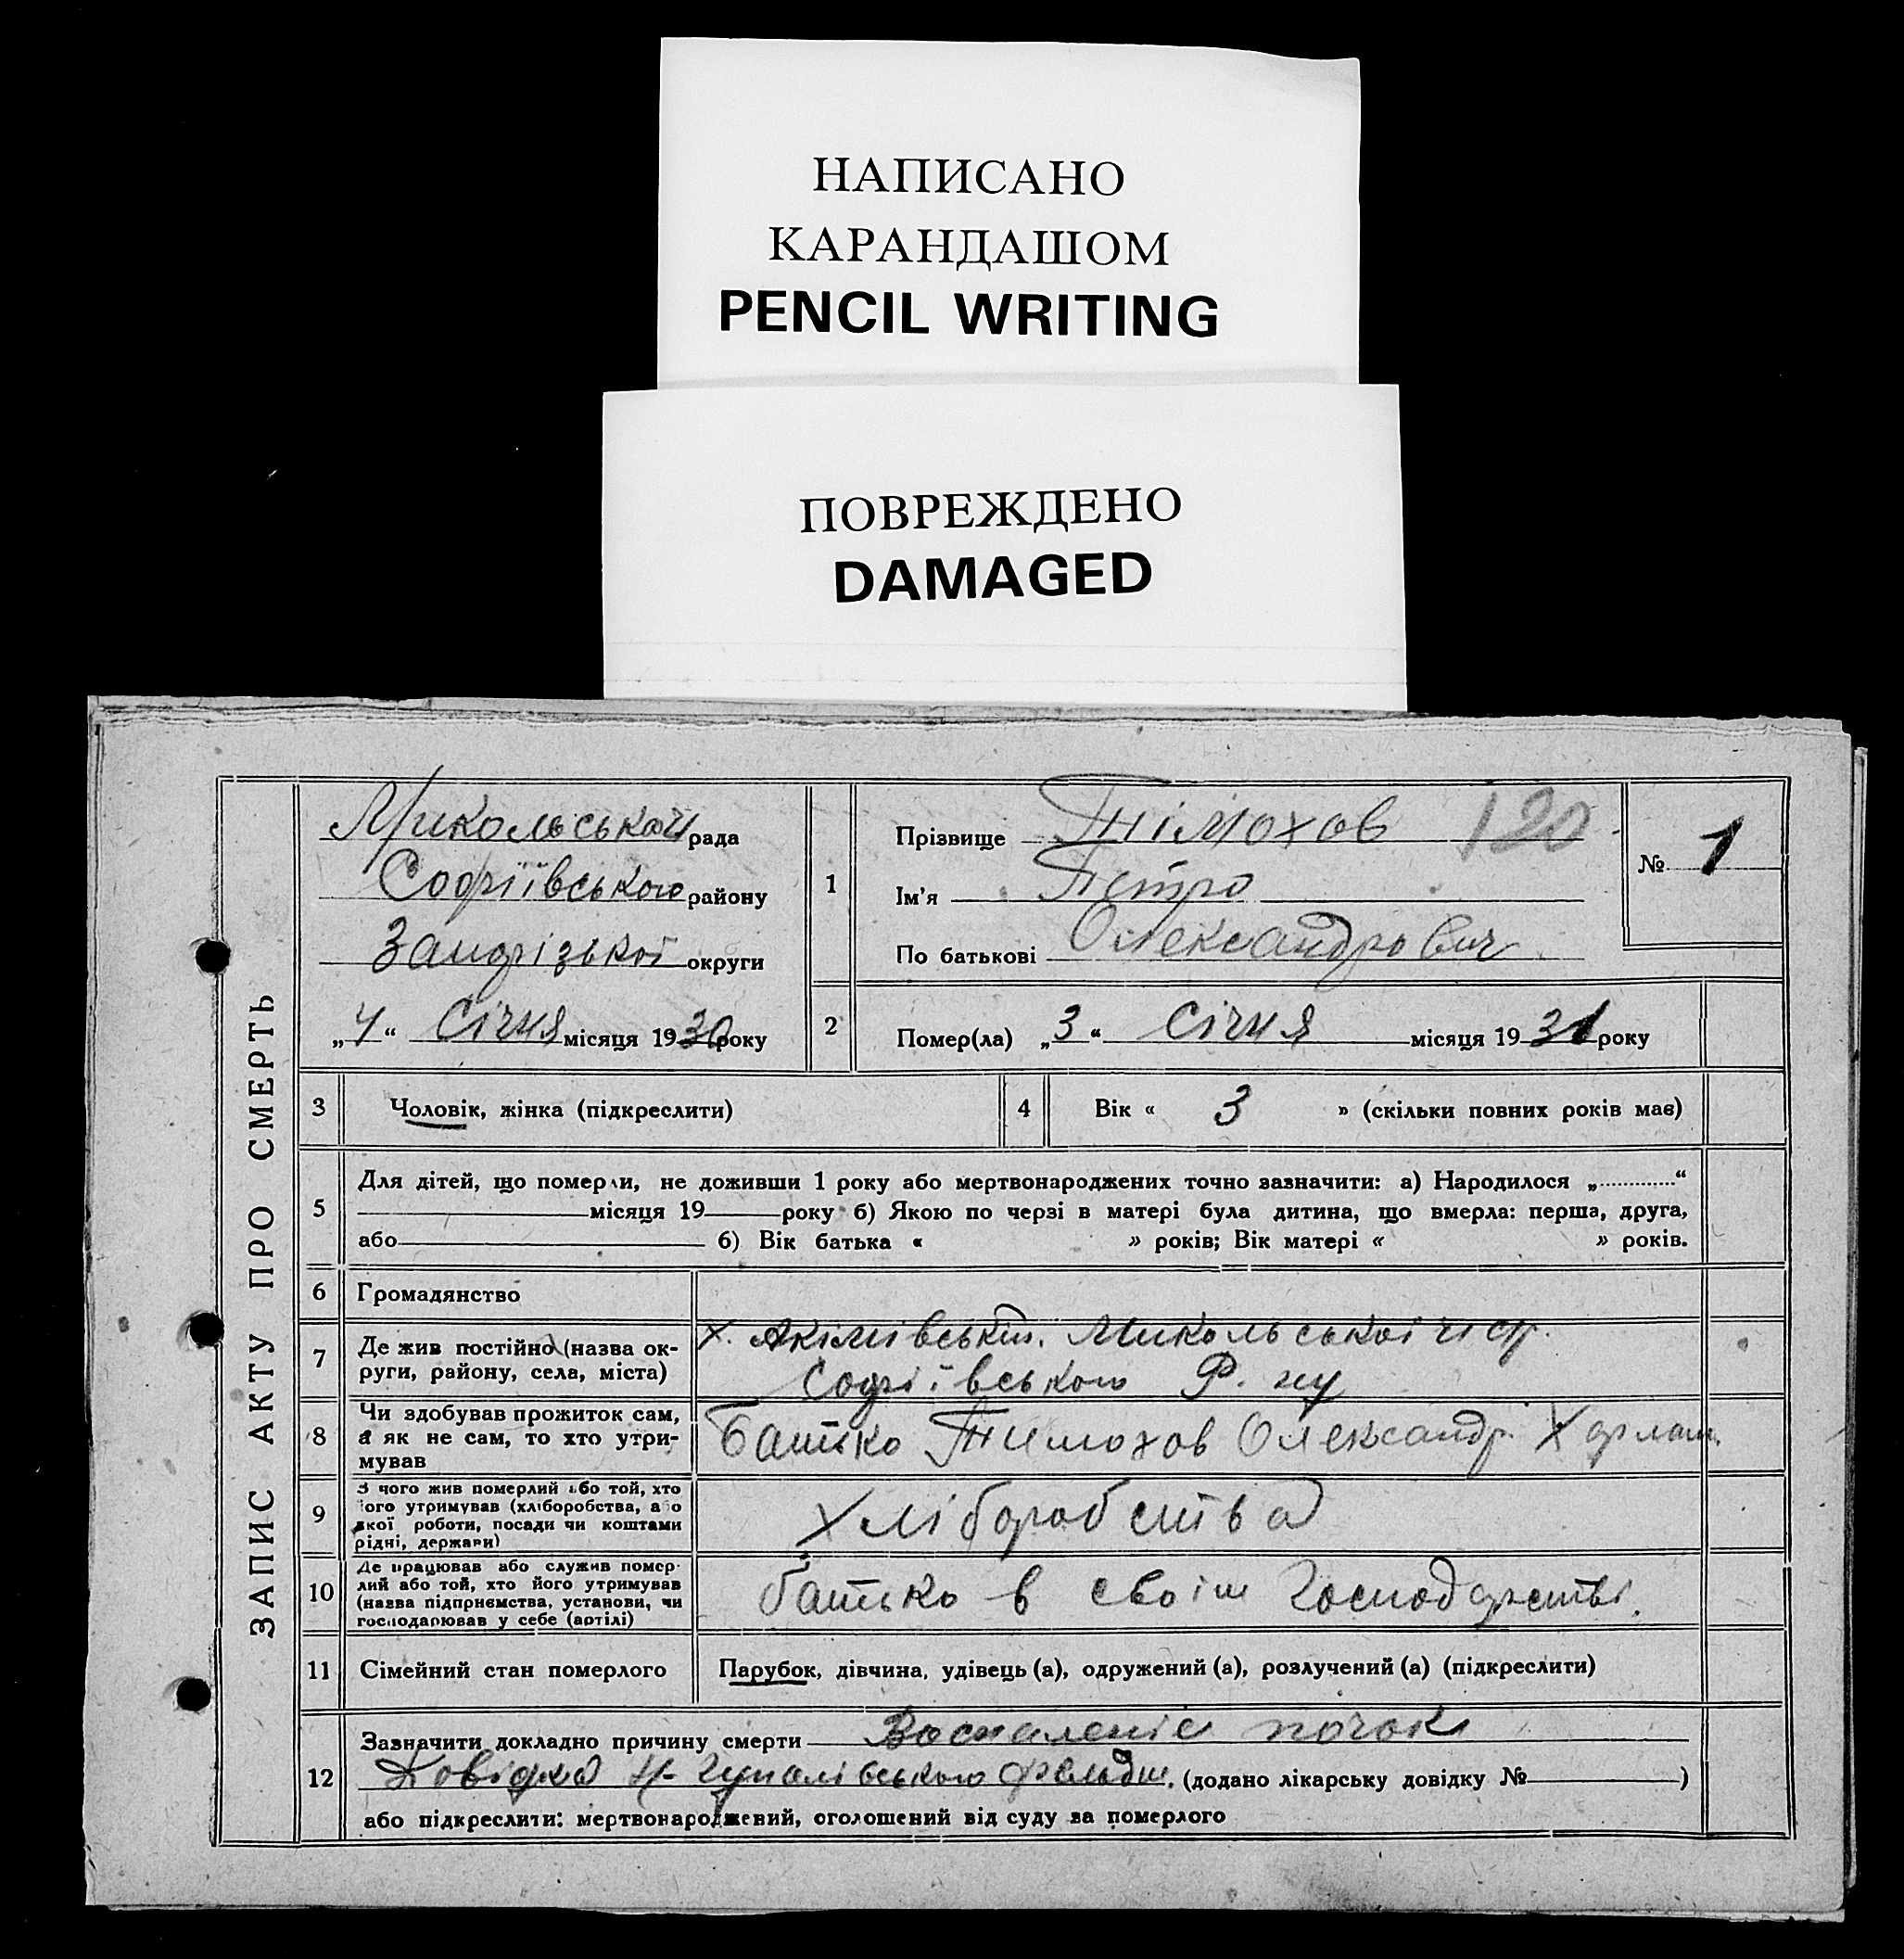 НАПИСАНО
КАРАНДАШОМ
PENCIL WRITING
ПОВРЕЖДЕНО
DAMAGED
ЗАПИС АКТУ ПРО СМЕРТЬ
Микольської рада
Софіївського району
Запорізької округи
„4“ Січня місяця 1930 року
1
Прізвище Тімохов 120
Ім'я Петро
По батькові Олександрович
№ 1
2
Помер(ла) „3“ Січня місяця 1931 року
3 Чоловік, жінка (підкреслити)
4 Вік « 3 » (скільки повних років має)
5
Для дітей, що померли, не доживши 1 року або мертвонароджених точно зазначити: а) Народилося „............“
місяця 19 року б) Якою по черзі в матері була дитина, що вмерла: перша, друга,
або б) Вік батька « » років; Вік матері « » років.
6 Громадянство
7 Де жив постійно (назва ок-
руги, району, села, міста)
х. Акімівський. Микольської
Софіївського Р. ну
8 Чи здобував прожиток сам,
а як не сам, то хто утри-
мував
Батько Тимохов Олександр Харлам.
9 З чого жив померлий або той, хто
його утримував (хліборобства, або
якої роботи, посади чи коштами
рідні, держави)
Хліборобства
10 Де працював або служив помер-
лий або той, хто його утримував
(назва підприємства, установи, чи
господарював у себе (артілі)
батько в своїм господарстві.
11 Сімейний стан померлого
Парубок, дівчина, удівець (а), одружений (а), розлучений (а) (підкреслити)
12
Зазначити докладно причину смерти Воспаленіє почок
Довідка фельдш. (додано лікарську довідку № )
або підкреслити: мертвонароджений, оголошений від суду за померлого